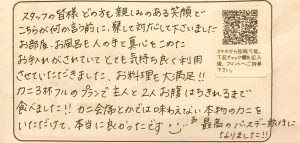 スタッフの皆様どの方も親しみのある笑顔で
こちらが何か言う前に、察して対応して下さいました
お部屋、お風呂も人の手と真心をこめた
お手入れがされていてとても気持ち良く利用
させていただきました。お料理も大満足!!
カニ3杯フルのプランで主人と2人お腹はちきれるまで
食べました!!カニ会席とかでは味わえない本物のカニを
いただけて、本当に良かったです
最高のバースデー旅行に
なりました!!
スマホから投稿可能。
下記チェック欄を記入
後、フロントへご持参
下さい。